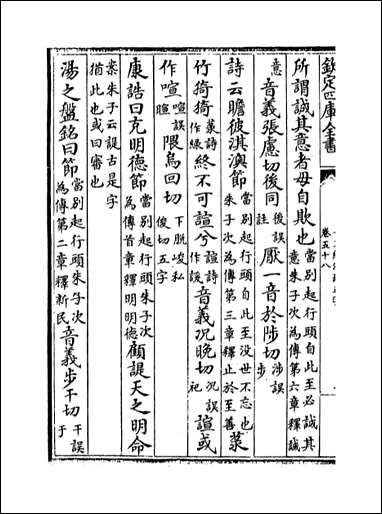 欽定四庫全書
卷五十八
所謂誠其意者毋自欺也當別起行頭自此至必誠其意朱子次為傳第六章釋誠
意 音義張慮切後同後誤註 厭一音於陟切陟誤步
詩云瞻彼淇澳節當別起行頭自此至没世不忘也朱子次為傳第三章釋止於至善 菉
竹猗猗菉詩作綠 終不可諠兮諠詩作諼 音義况晚切况誤祀 諠或
作喧喧誤暄 隕烏回切下脱埈私俊切五字
康誥曰克明德節當别起行頭朱子次為傳首章釋明明德 顧諟天之明命
案朱子云諟古是字
猶此也或曰審也
湯之盤銘曰節當別起行頭朱子次為傳第二章釋新民 音義步干切干誤于